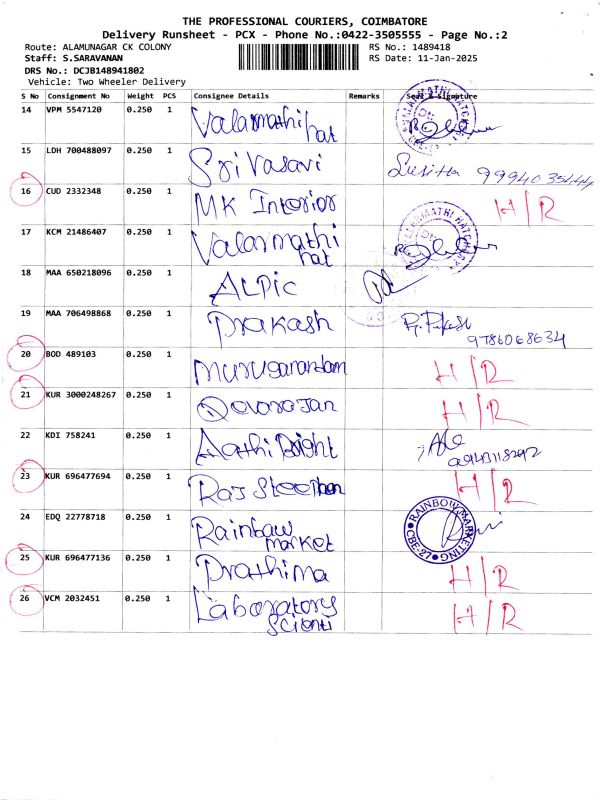 THE PROFESSIONAL COURIERS, COIMBATORE
Delivery Runsheet - PCX - Phone No.:0422-3505555 - Page No.:2
Route: ALAMUNAGAR CK COLONY
RS No.: 1489418
Staff: S.SARAVANAN
RS Date: 11-Jan-2025
DRS No.: DCJB148941802
Vehicle: Two Wheeler Delivery
S No Consignment No Weight PCS Consignee Details Remarks Seal & Signature
14 VPM 5547120 0.250 1 Valarmathi hat
15 LDH 700488097 0.250 1 Sri Vasavi
16 CUD 2332348 0.250 1 MK Interior H/R
17 KCM 21486407 0.250 1 Valarmathi hat
18 MAA 650218096 0.250 1 ALPic
19 MAA 706498868 0.250 1 Prakash 9786068634
20 BOD 489103 0.250 1 H/R
21 KUR 3000248267 0.250 1 H/R
22 KDI 758241 0.250 1 Aathi
23 KUR 696477694 0.250 1 Raj H/R
24 EDQ 22778718 0.250 1 Rainbaw market RAINBOW MARKETING CBE-27
25 KUR 696477136 0.250 1 Prathima H/R
26 VCM 2032451 0.250 1 Laboratory H/R